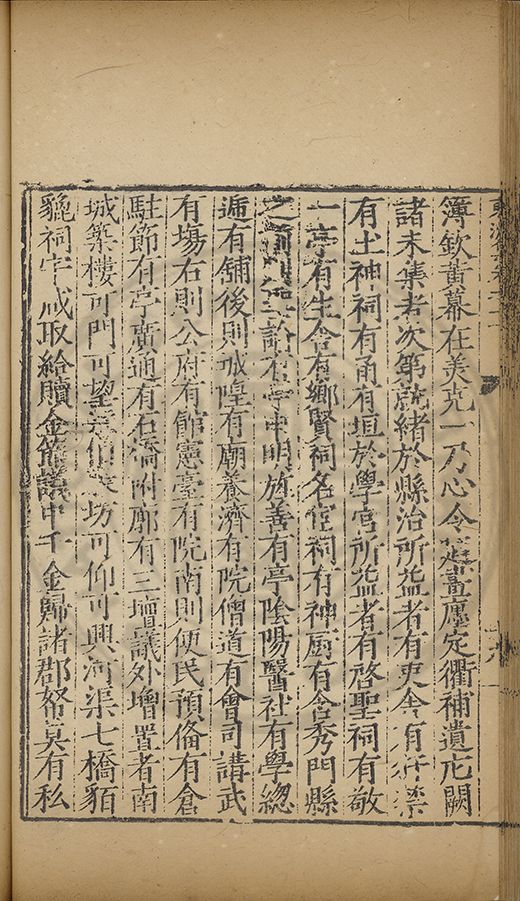 簿欽黃幕在美克一乃心令甚畫廛定衢補遺庀闕
諸未集者次第就緒於縣治所益者有吏舍有行禁
有土神祠有甬有垣於學官所益者有啓聖祠有敬
一亭有生舍有鄉賢祠名宦祠有神厨有舍秀門縣
之前則左右有亭申明旌善有亭陰陽醫社有學緫
逓有舖後則城隍有廟養濟有院僧道有會司講武
有場右則公府有館憲臺有院南則便民預俻有倉
駐節有亭廣通有石橋附廓有三壇議外增置者南
城築樓可門可望坊可仰可興河渠七橋貊
貔祠字咸取給贖金籍議中千金歸諸郡帑莫有私